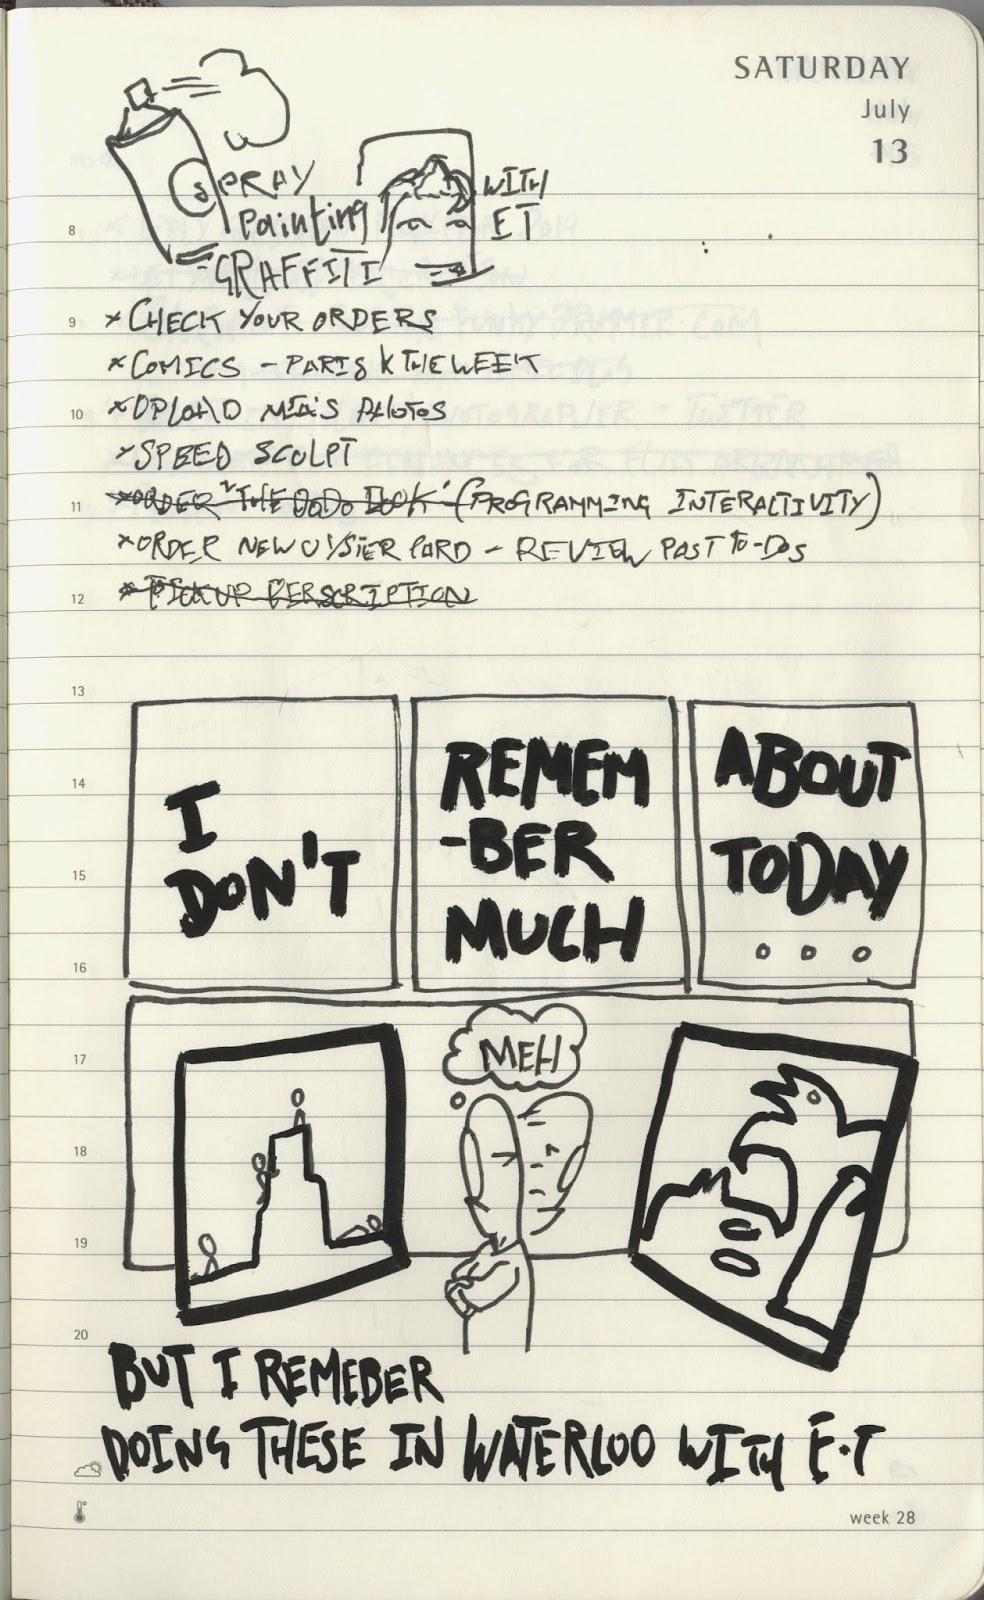 SATURDAY
July
13
SPRAY
Painting
GRAFFITI
WITH
ET
8
9
10
11
12
13
14
15
16
17
18
19
20
*CHECK YOUR ORDERS
*COMICS - PARIS & THE WEEK
*UPLOAD MIA'S PHOTOS
*SPEED SCULPT
*ORDER "THE DODO BOOK" (PROGRAMMING INTERACTIVITY)
*ORDER NEW OYSTER CARD - REVIEW PAST TO-DOS
*PICK UP PERSCRIPTION
I
DON'T
REMEM
-BER
MUCH
ABOUT
TODAY
...
MEH
BUT I REMEBER
DOING THESE IN WATERLOO WITH E.T
week 28